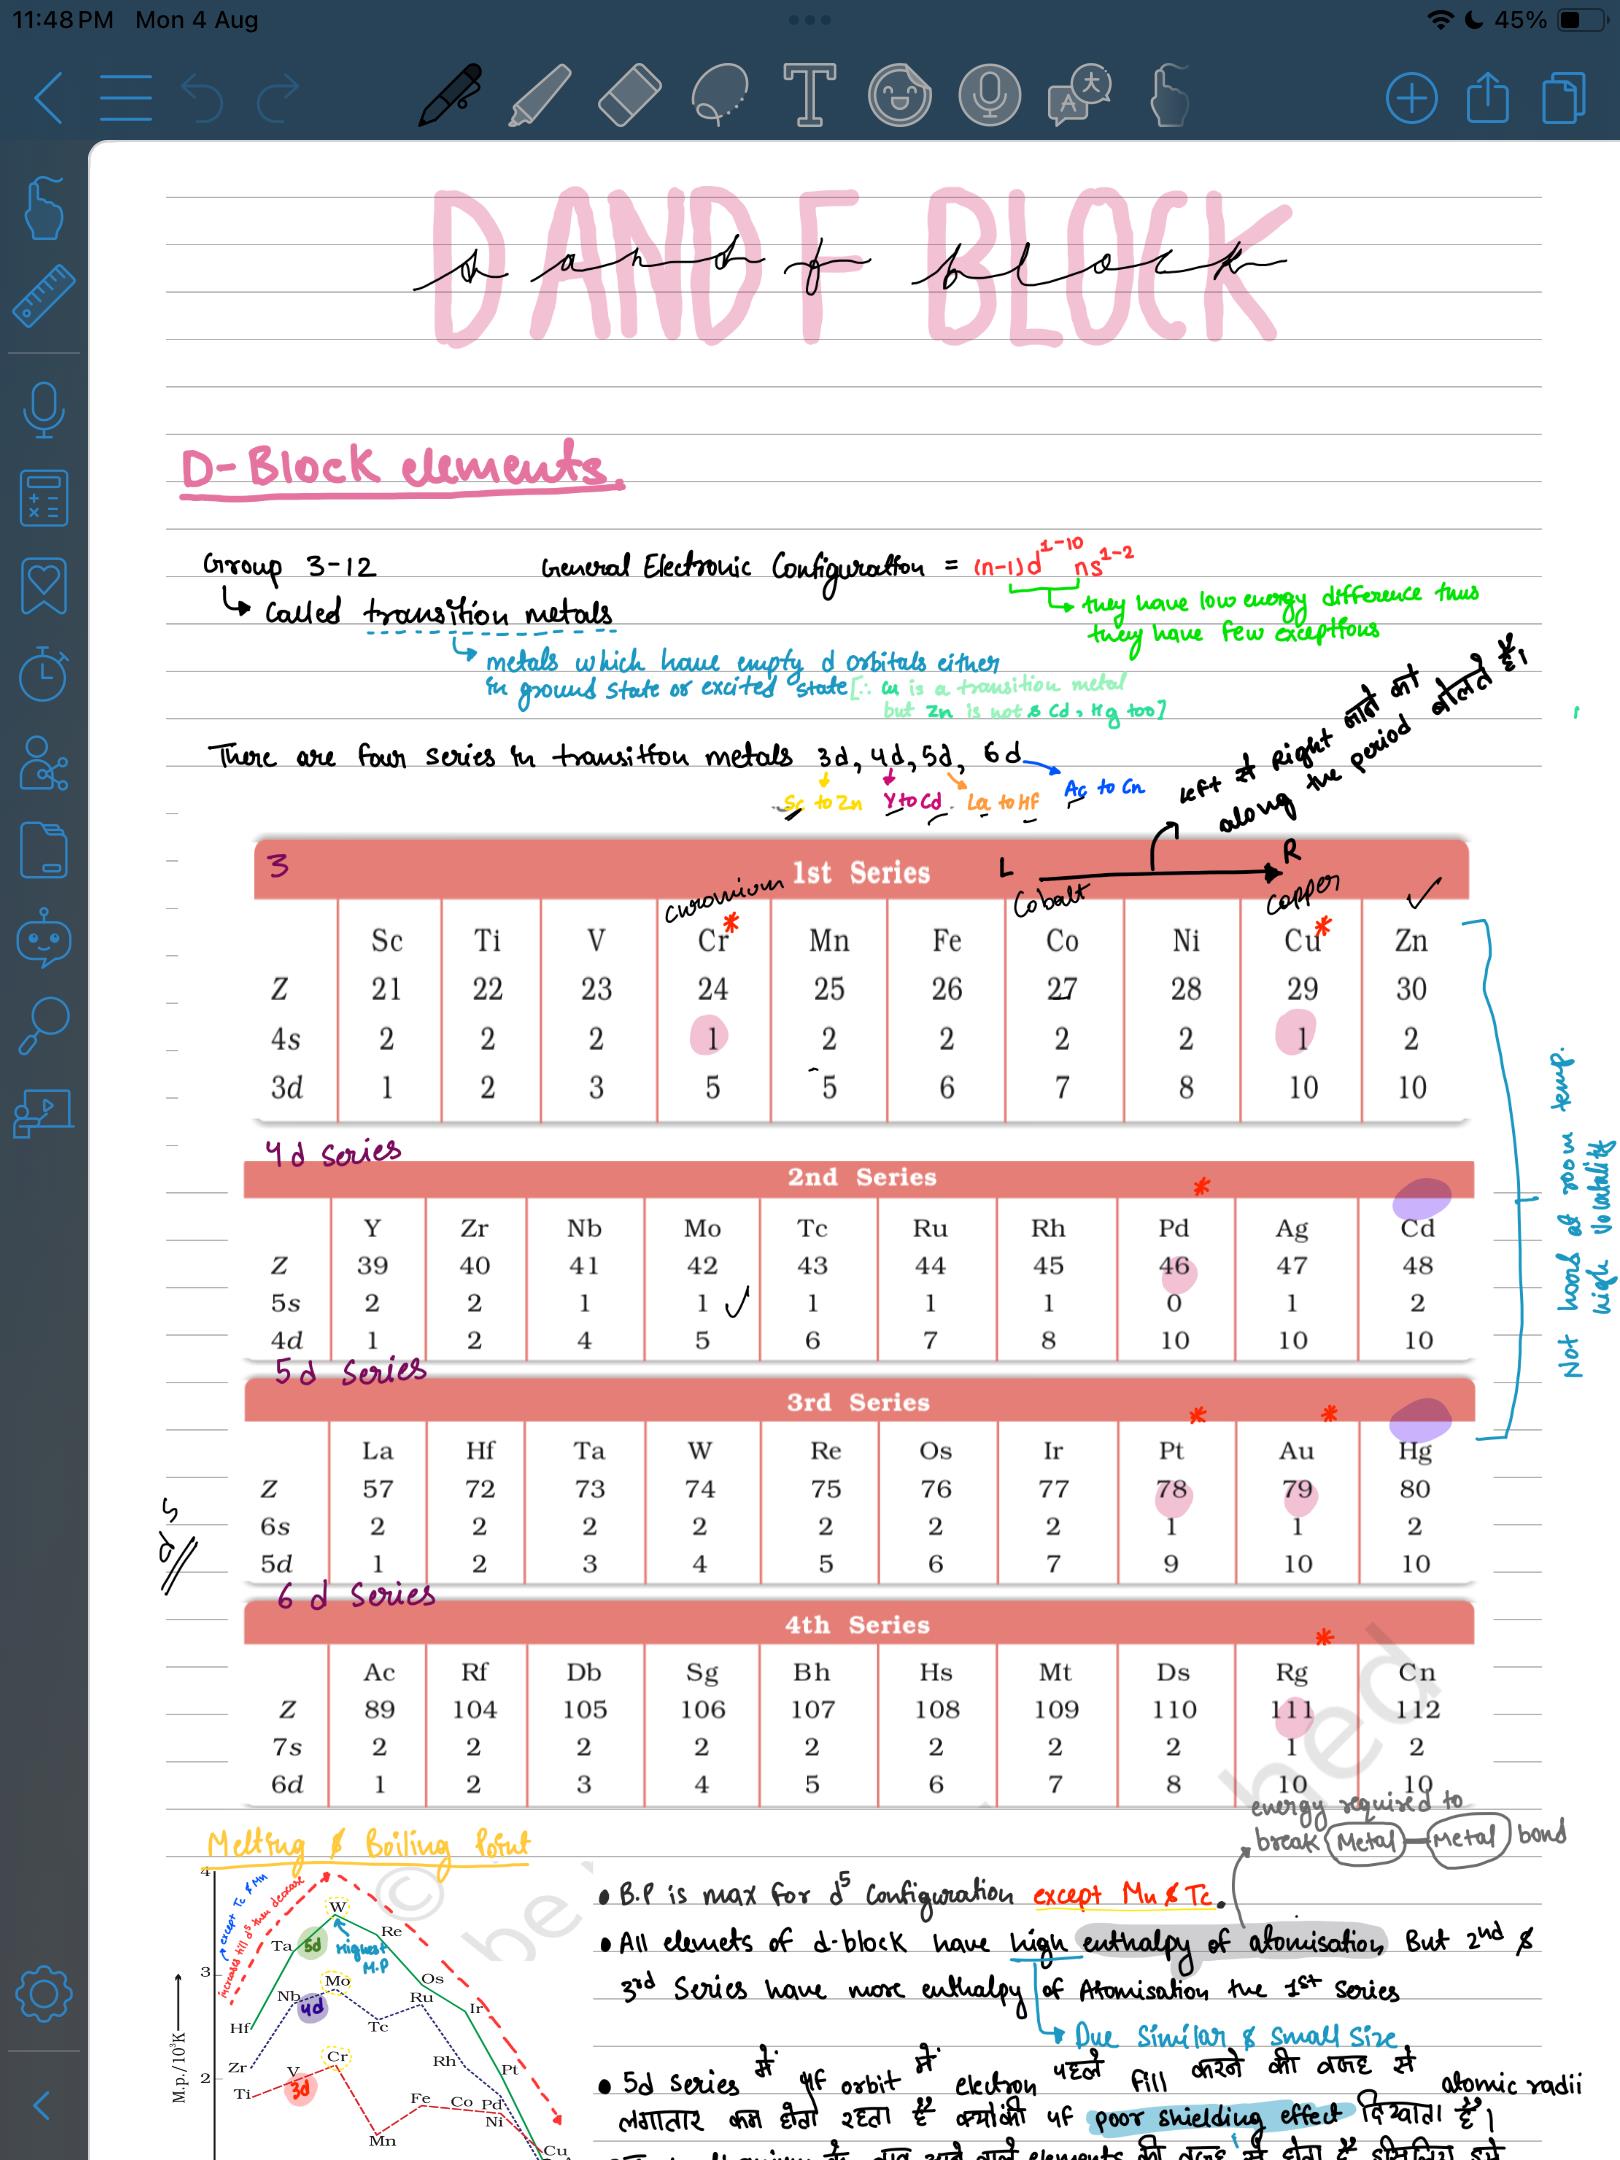 11:48 PM Mon 4 Aug
45%
D AND F BLOCK
d and f block
D-Block elements.
Group 3-12
General Electronic Configuration = (n-1)d¹⁻¹⁰ ns¹⁻²
Called transition metals
they have low energy difference thus
they have few exceptions
metals which have empty d orbitals either
in ground state or excited state [∴ Cu is a transition metal
but Zn is not & Cd, Hg too]
There are four series in transition metals 3d, 4d, 5d, 6d
Sc to Zn Y to Cd La to Hf Ac to Cn
left से Right जाने को
along the period बोलते हैं।
3 1st Series L R
Chromium Cobalt Copper
Sc Ti V Cr* Mn Fe Co Ni Cu* Zn
Z 21 22 23 24 25 26 27 28 29 30
4s 2 2 2 1 2 2 2 2 1 2
3d 1 2 3 5 5 6 7 8 10 10
4d Series
2nd Series *
Y Zr Nb Mo Tc Ru Rh Pd Ag Cd
Z 39 40 41 42 43 44 45 46 47 48
5s 2 2 1 1 1 1 1 0 1 2
4d 1 2 4 5 6 7 8 10 10 10
5d Series
3rd Series * *
La Hf Ta W Re Os Ir Pt Au Hg
Z 57 72 73 74 75 76 77 78 79 80
6s 2 2 2 2 2 2 2 1 1 2
5d 1 2 3 4 5 6 7 9 10 10
s
d
6d Series
4th Series *
Ac Rf Db Sg Bh Hs Mt Ds Rg Cn
Z 89 104 105 106 107 108 109 110 111 112
7s 2 2 2 2 2 2 2 2 1 2
6d 1 2 3 4 5 6 7 8 10 10
Not hard at room temp.
high volatality
energy required to
break Metal — Metal bond
Melting & Boiling Point
except Tc & Mn
increases till d⁵ then decrease
4
3
2
M.p./10³K
W
Re
Ta 5d
Highest
M.P
Mo
Os
Nb 4d
Ru
Ir
Hf
Tc
Zr
V
Cr
Rh
Pt
Ti
3d
Fe
Co
Pd
Ni
Mn
Cu
• B.P is max for d⁵ Configuration except Mn & Tc.
• All elemets of d-block have high enthalpy of atomisation, But 2nd &
3rd Series have more enthalpy of Atomisation the 1st Series
Due Similar & Small Size
• 5d series में 4f orbit में electron पहले fill करने की वजह से atomic radii
लगातार कम होता रहता है क्योंकी 4f poor shielding effect दिखाता है।
©
he
hed